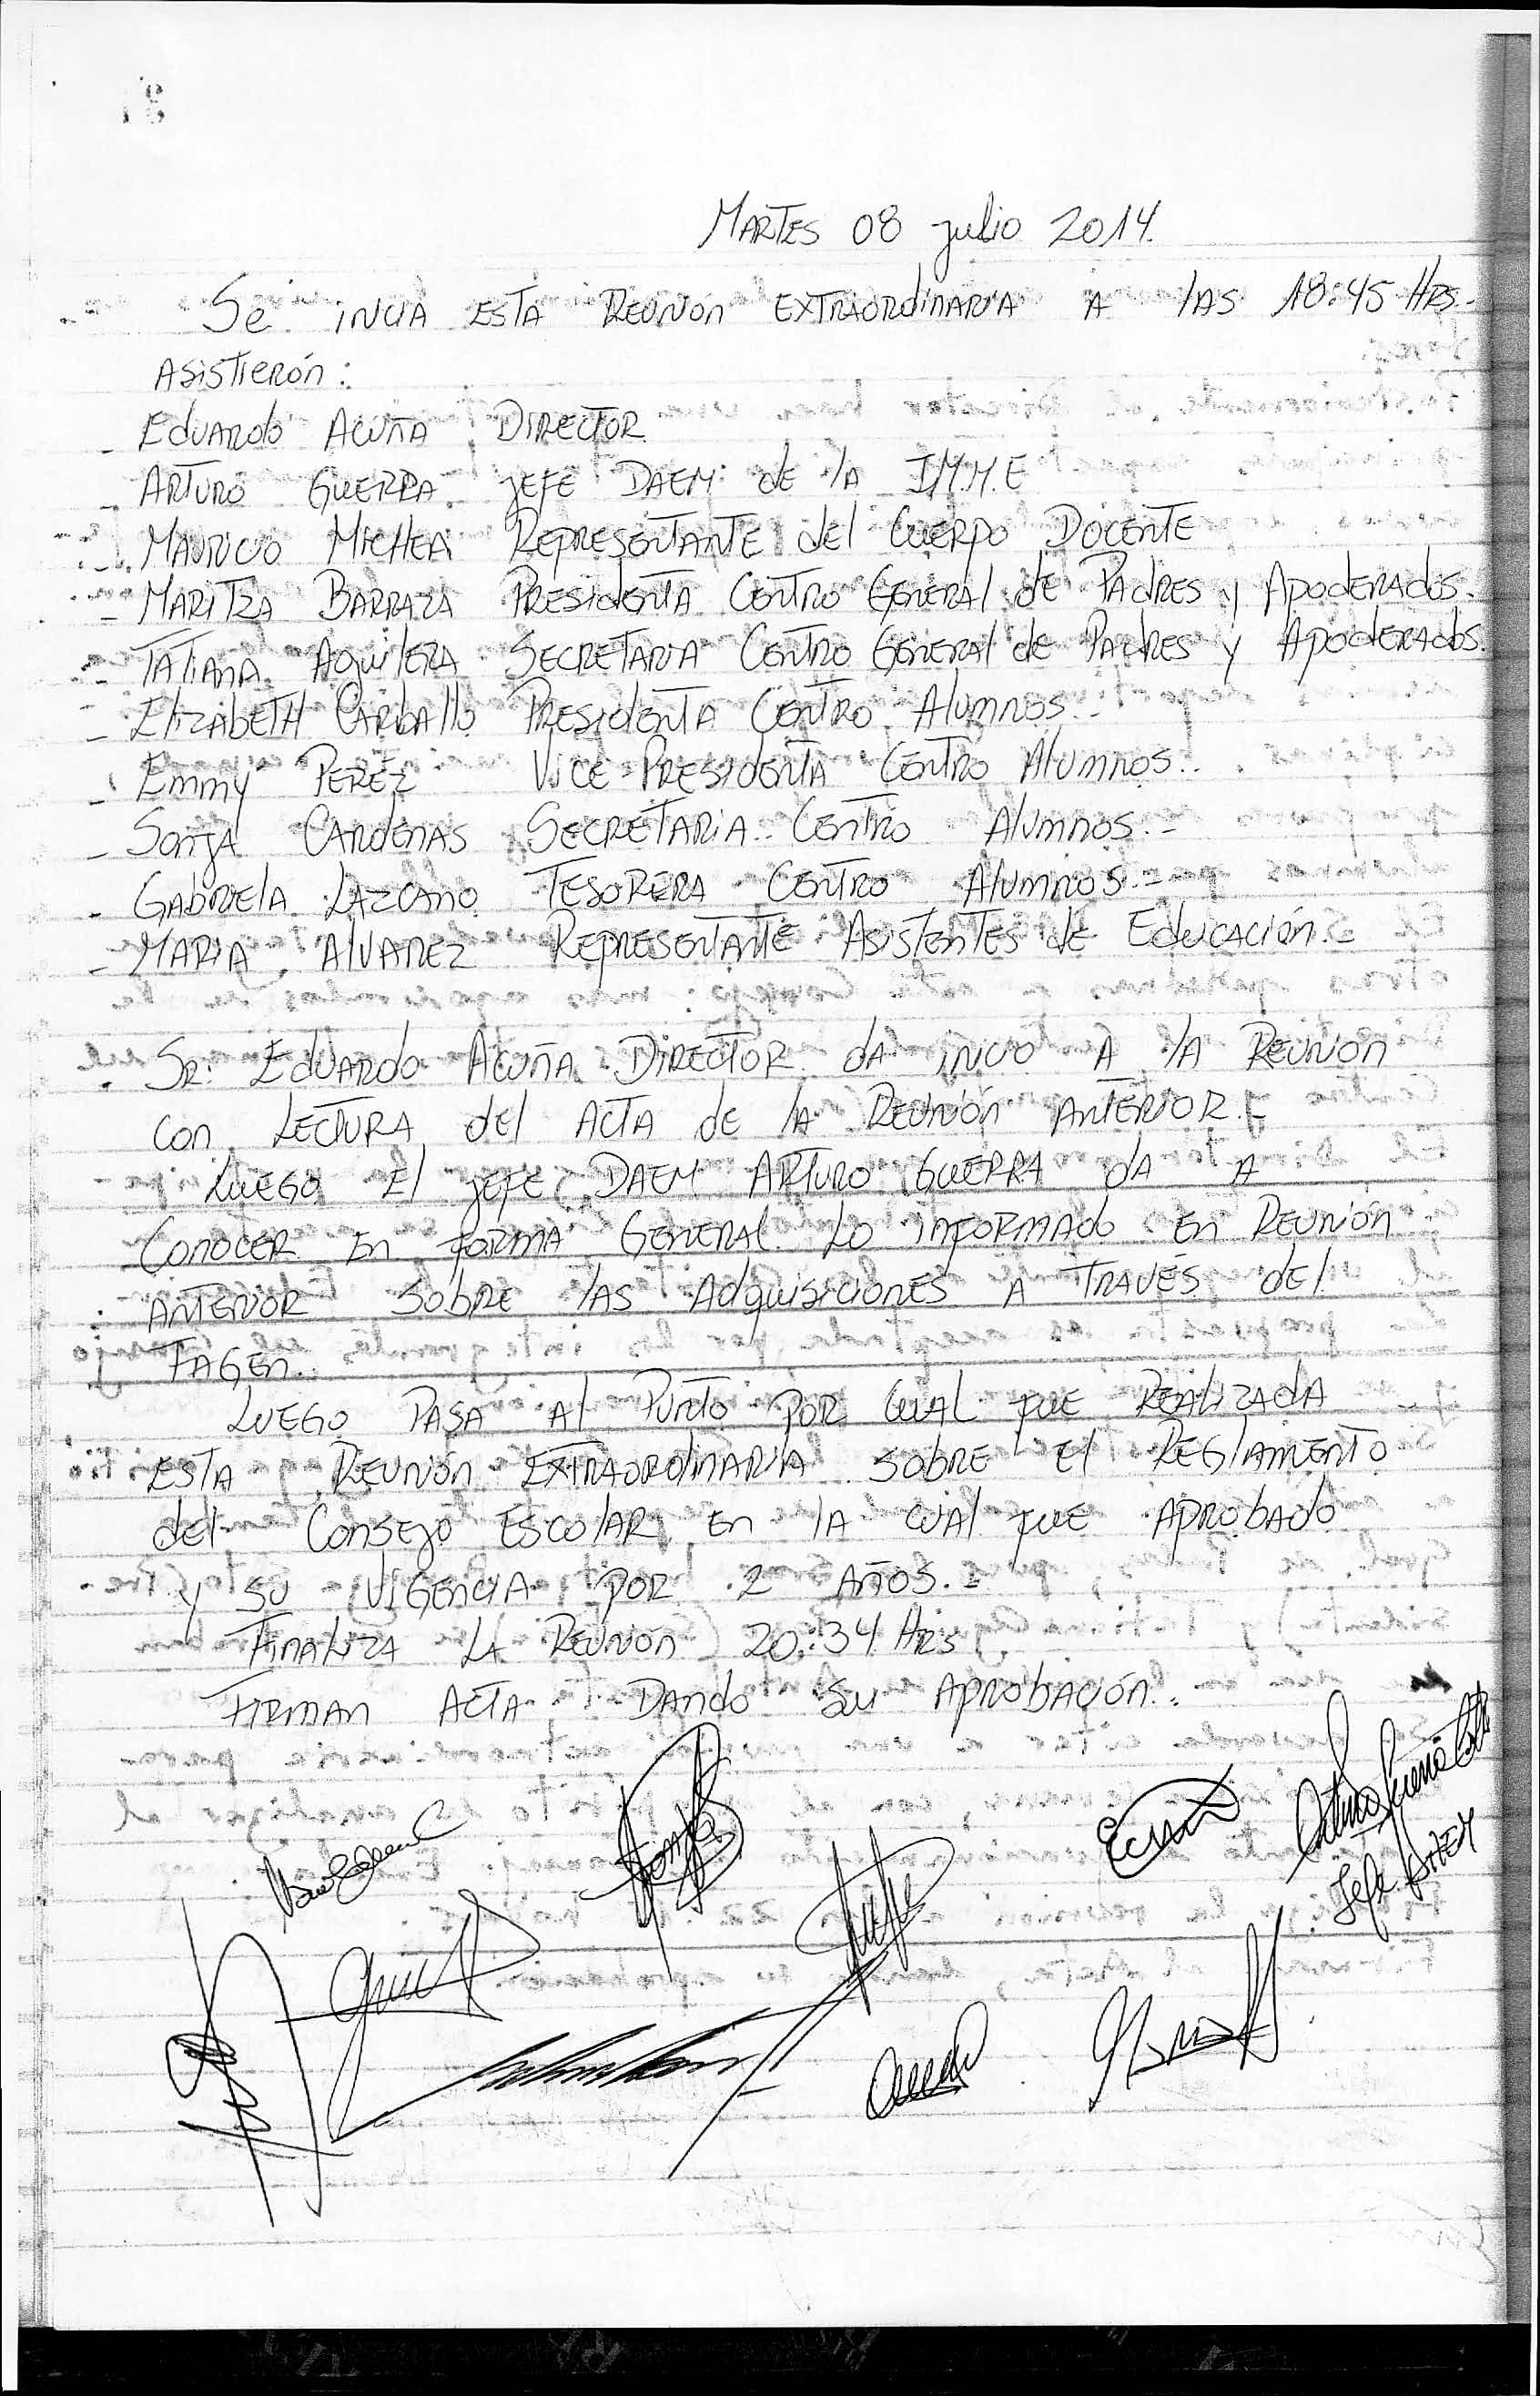 Martes 08 julio 2014.
Se inicia esta Reunión Extraordinaria a las 18:45 Hrs.-
Asistierón:
- Eduardo Acuña Director
- Arturo Guerra jefe DAEM de la I.M.M.E
- Mauricio Michea Representante del Cuerpo Docente
- Maritza Barraza Presidenta Centro General de Padres y Apoderados.
- Tatiana Aguilera Secretaria Centro General de Padres y Apoderados.
- Elizabeth Carballo Presidenta Centro Alumnos.-
- Emmy Perez Vice-Presidenta Centro Alumnos.-
- Sonja Cardenas Secretaria Centro Alumnos.-
- Gabriela Lazcano Tesorera Centro Alumnos.-
- Maria Alvarez Representante Asistentes de Educación.-
. Sr. Eduardo Acuña Director da inicio a la Reunión
con Lectura del Acta de la Reunión Anterior.-
Luego el jefe DAEM Arturo Guerra da a
Conocer en forma General lo informado en Reunión
anterior sobre las Adquisiciones a través del
FAGEM.
Luego pasa al Punto por cual fue Realizada
esta Reunión Extraordinaria sobre el Reglamento
del Consejo Escolar en la cual fue Aprobado
y su Vigencia por 2 años.-
Finaliza la Reunión 20:34 Hrs
Firman Acta Dando su Aprobación.
Jefe DAEM